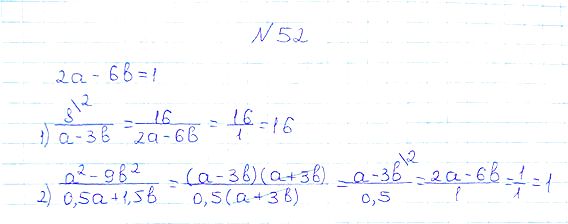 N 52
2a - 6b = 1
1) 8\2 / (a - 3b) = 16 / (2a - 6b) = 16/1 = 16
2) (a² - 9b²) / (0,5a + 1,5b) = (a - 3b)(a + 3b) / 0,5(a + 3b) = (a - 3b)\2 / 0,5 = (2a - 6b) / 1 = 1/1 = 1